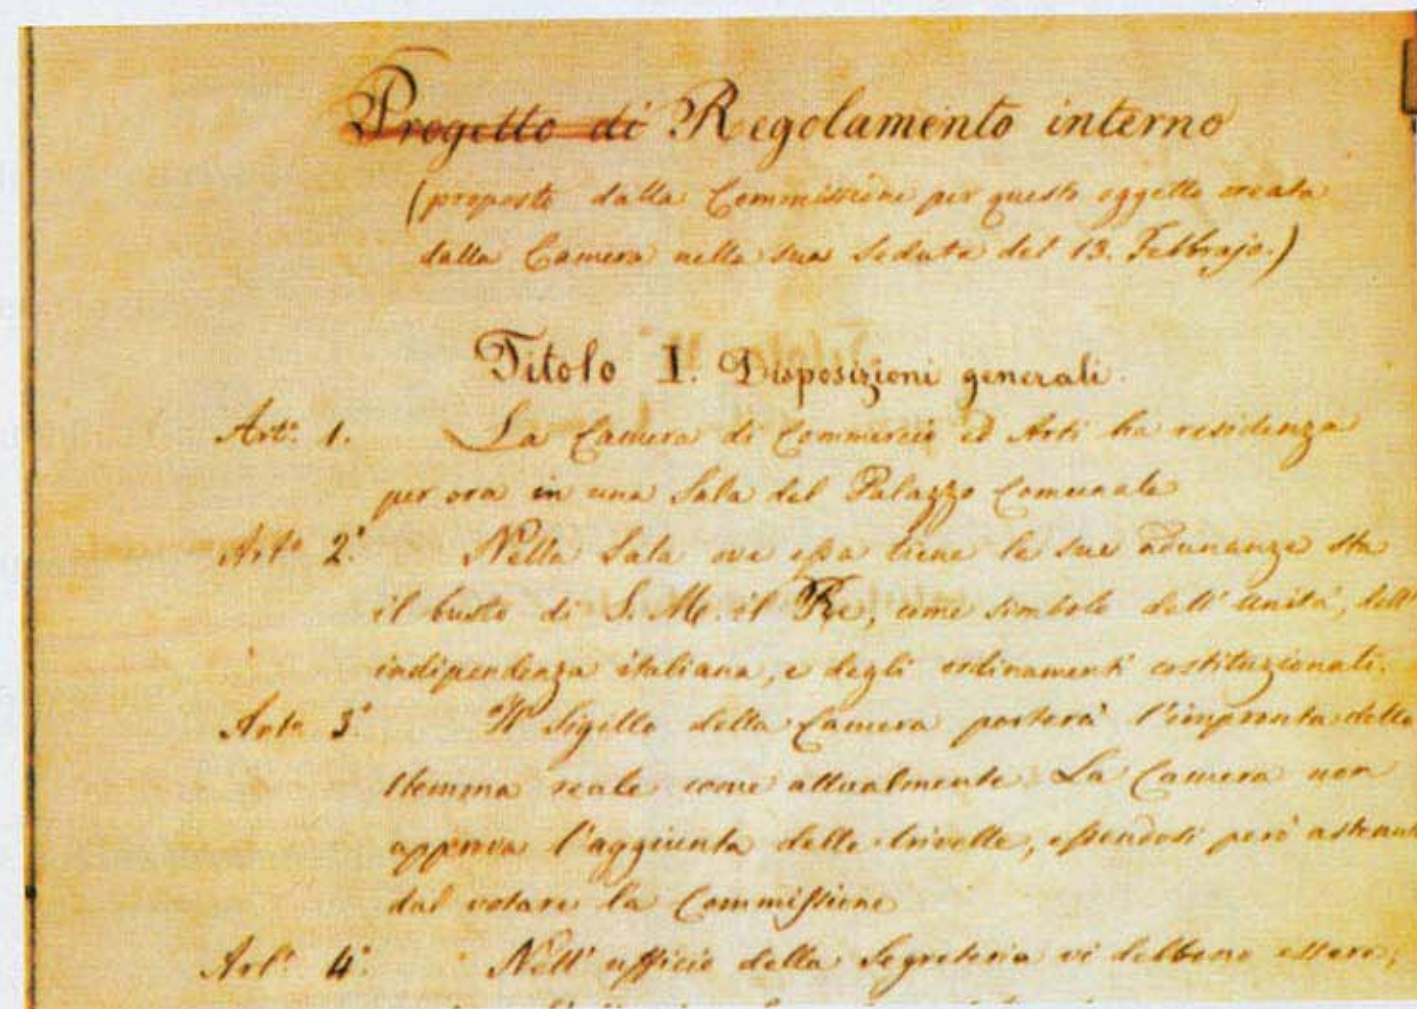 Progetto di Regolamento interno
(proposto dalla Commissione per questo oggetto creata
dalla Camera nella sua Seduta del 13. Febbrajo.)
Titolo I. Disposizioni generali.
Art.º 1. La Camera di Commercio ed Arti ha residenza
per ora in una Sala del Palazzo Comunale
Art.º 2.º Nella Sala ove essa tiene le sue adunanze sta
il busto di S. M. il Re, come simbolo dell' unità, dell'
indipendenza italiana, e degli ordinamenti costituzionali.
Art.º 3.º Il Sigillo della Camera porterà l'impronta dello
stemma reale come attualmente. La Camera non
approva l'aggiunta delle trivelle, essendosi però
dal votare la Commissione
Art.º 4.º Nell' ufficio della Segreteria vi debbono essere,